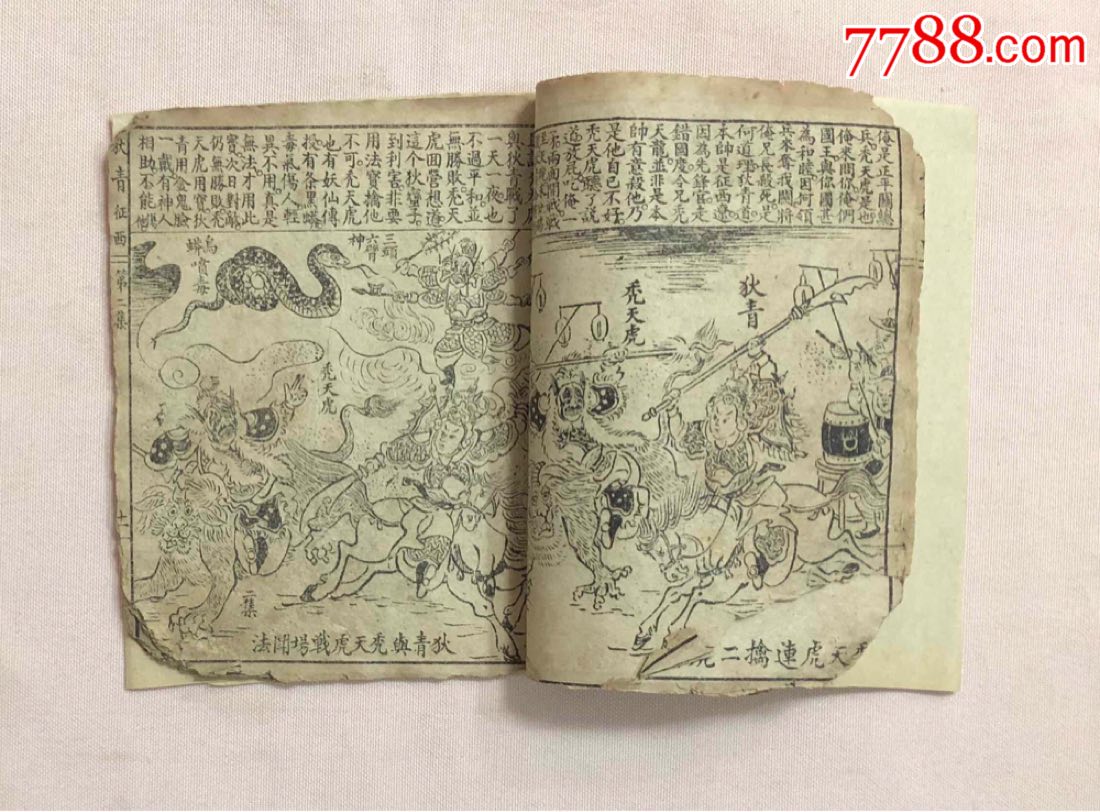 7788.com
俺是正平國總
兵禿天虎是也
俺來問你俺們
國王與你國甚
為和睦因何領
兵來奪我國將
俺兄長殺死是
何道理狄青道
本帥是征西還
因為先鋒官走
錯國度令兄禿
天龍並非是本
帥有意殺他乃
是他自己不好
禿天虎聽了說
道放屁吃俺
狄青
禿天虎
天虎連擒二
與狄青戰了
一天一夜也
不過平和並
無勝敗禿天
虎回營想道
這個狄蠻子
到利害非要
用法寶擒他
不可禿天虎
也有妖仙傳
授有条黑蟒
毒氣傷人輕
不用真是
無法才用此
寶次日對敵
仍無勝敗禿
天虎用寶狄
青用金鬼臉
一戴有神人
相助不能
三頭
六臂
神
烏寶毒
蟒
禿天虎
二集
狄青與禿天虎戰場鬪法
狄青征西
第二集
十一